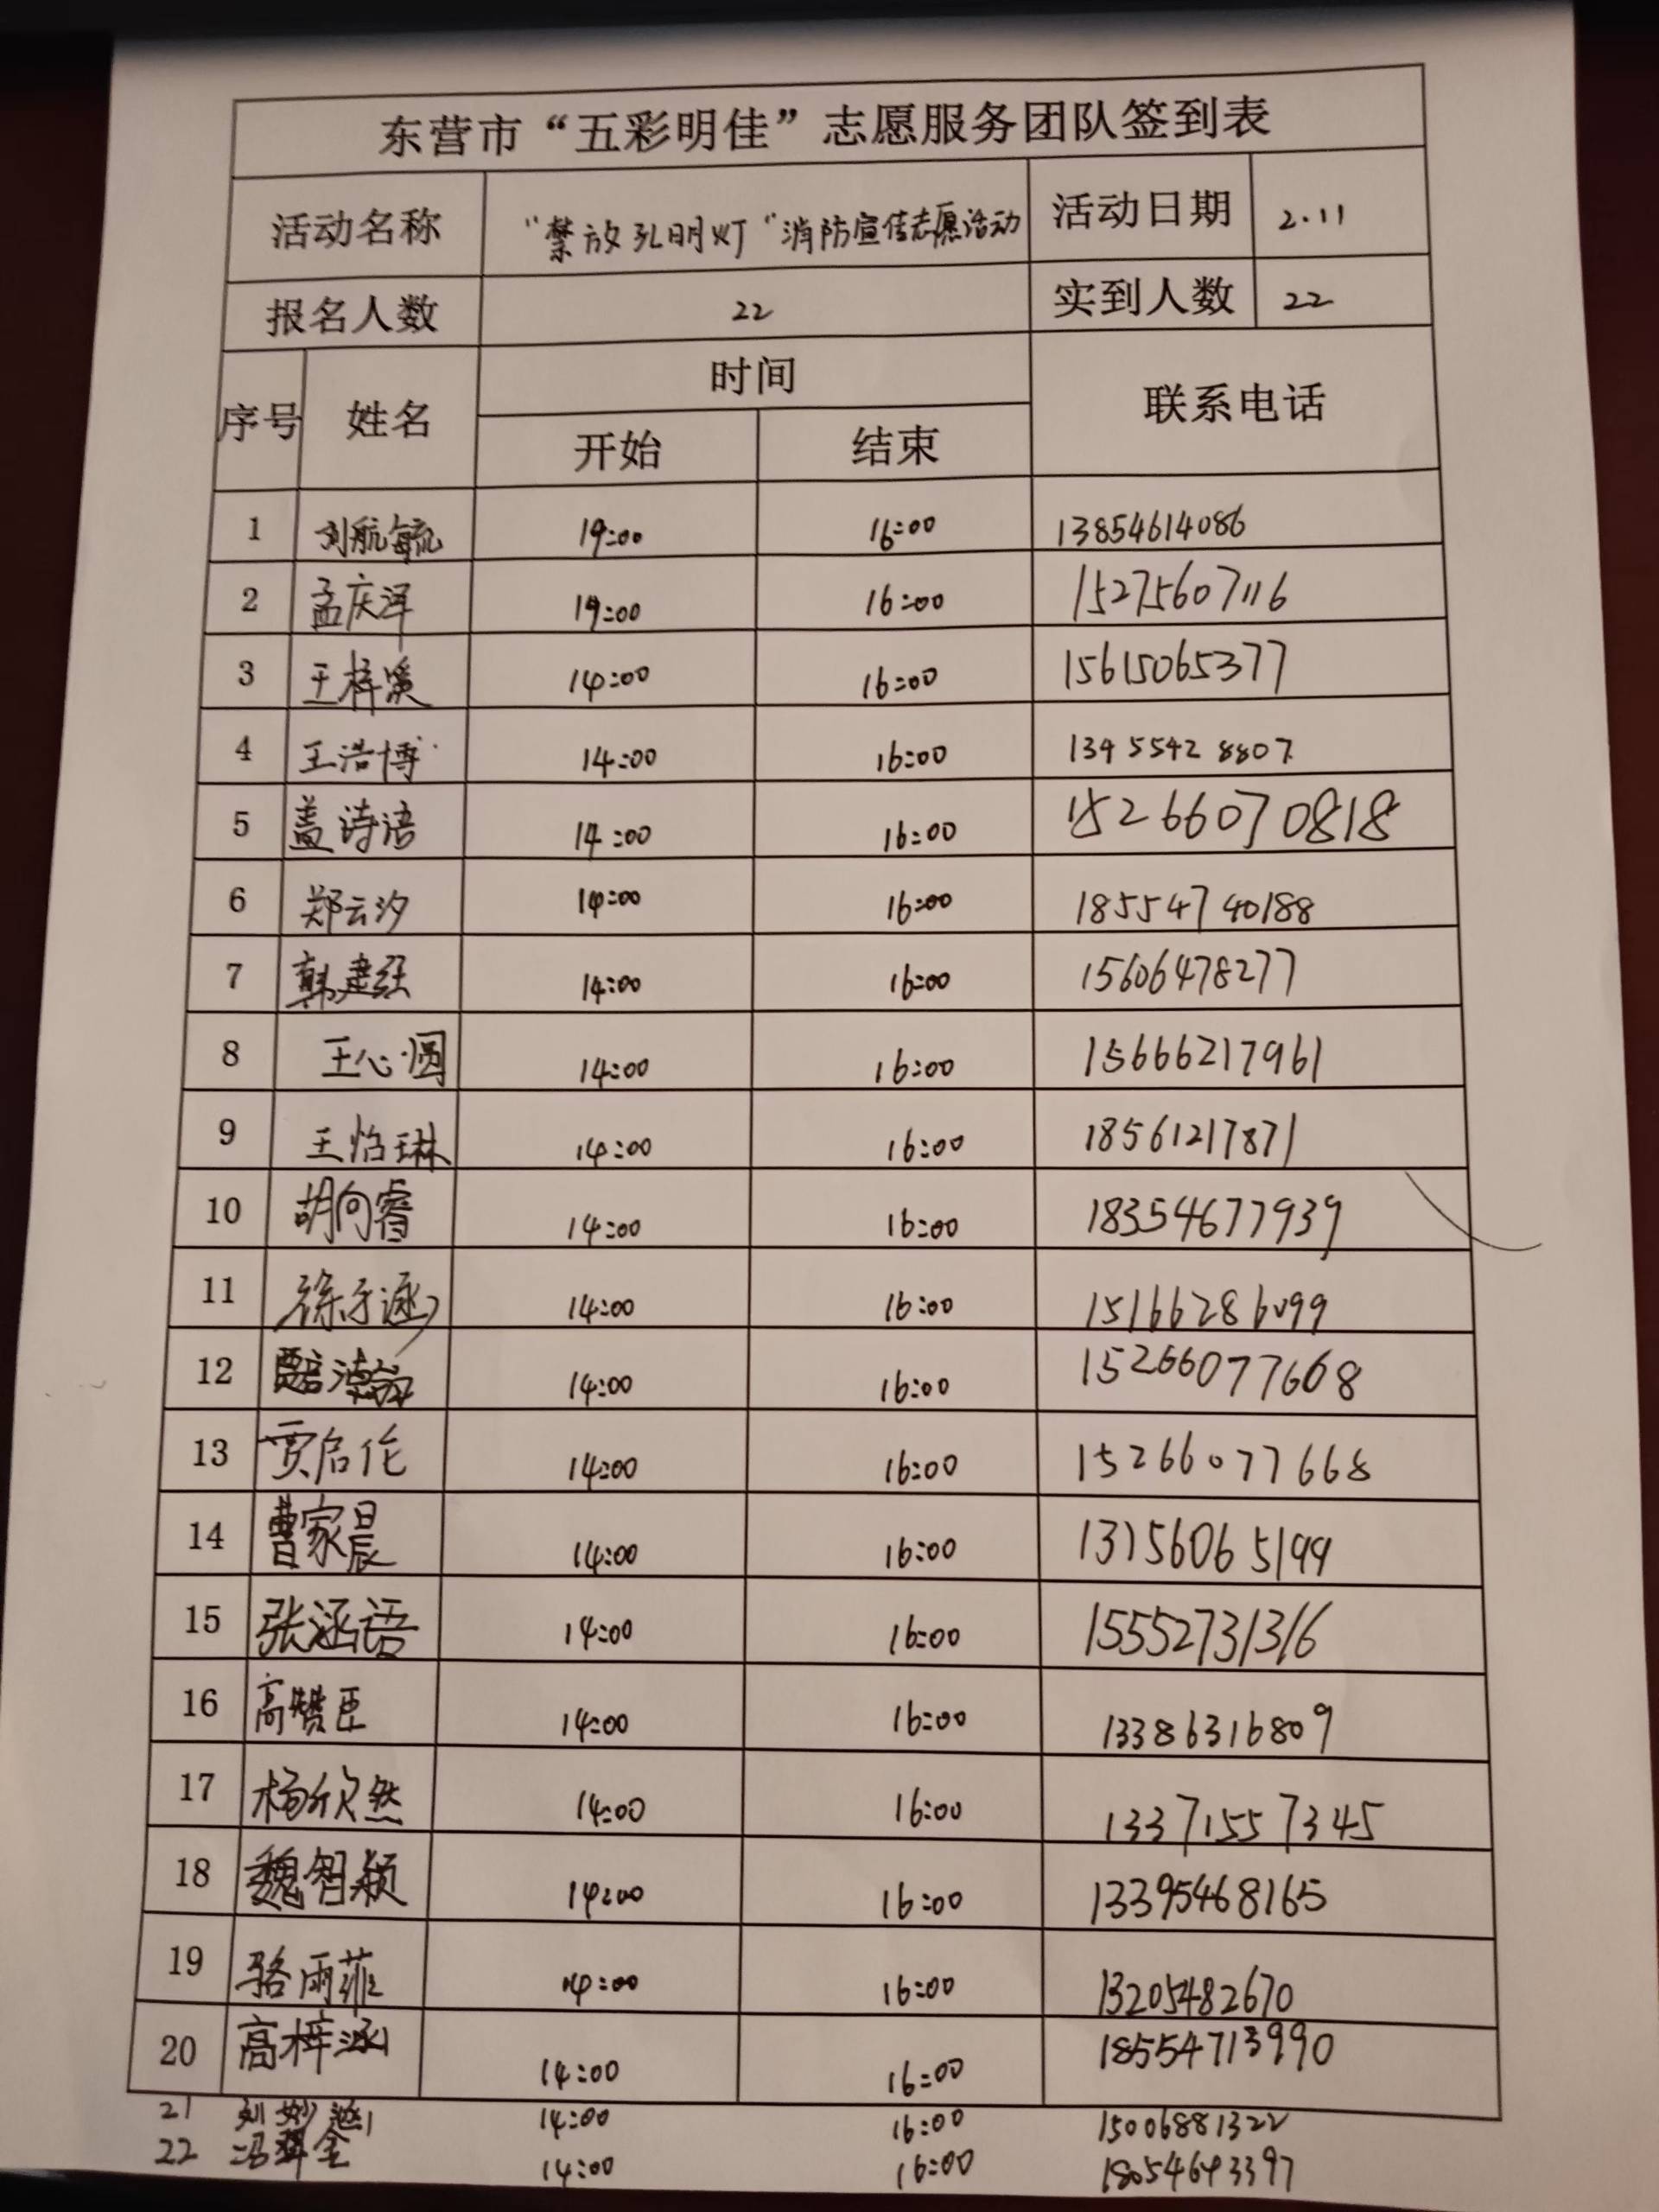 东营市“五彩明佳”志愿服务团队签到表
活动名称 “禁放孔明灯”消防宣传志愿活动 活动日期 2.11
报名人数 22 实到人数 22
序号 姓名 时间 联系电话
开始 结束
1 刘航毓 14:00 16:00 13854614086
2 孟庆泽 14:00 16:00 15275607116
3 王梓溪 14:00 16:00 15615065377
4 王浩博 14:00 16:00 13455428807
5 盖诗语 14:00 16:00 15266070818
6 郑云汐 14:00 16:00 18554740188
7 韩建 14:00 16:00 15606478277
8 王心圆 14:00 16:00 15666217961
9 王怡琳 14:00 16:00 18561217871
10 胡向睿 14:00 16:00 18354677939
11 徐子涵 14:00 16:00 15166286099
12 14:00 16:00 15266077668
13 贾启伦 14:00 16:00 15266077668
14 曹家晨 14:00 16:00 13156065199
15 张涵语 14:00 16:00 15552731316
16 高赞臣 14:00 16:00 13386316809
17 杨欣然 14:00 16:00 13371557345
18 魏智颖 14:00 16:00 13395468165
19 骆雨菲 14:00 16:00 13205482670
20 高梓涵 14:00 16:00 18554713990
21 刘妙涵 14:00 16:00 15006881322
22 冯 14:00 16:00 18054643397